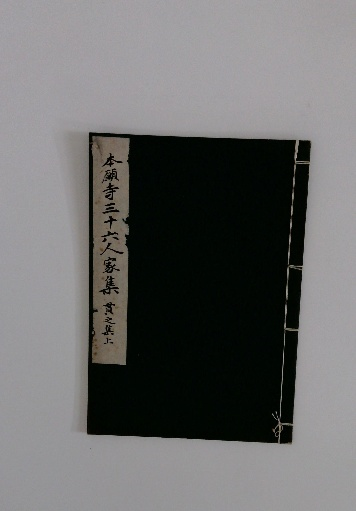 本願寺三十六人家集 貫之集上